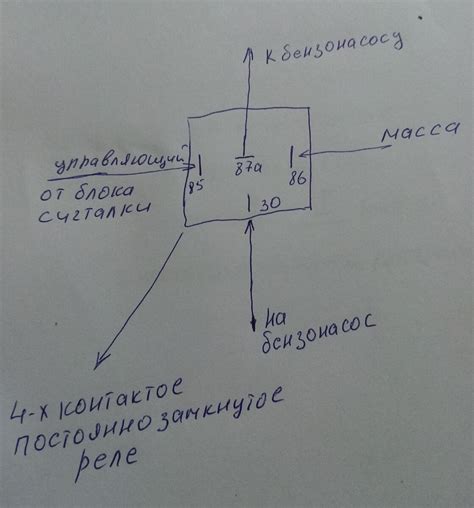 к бензонасосу
масса
управляющий
от блока
сигталки
85
87а
86
30
на
бензонасос
4-х контактое
постоянно замкнутое
реле